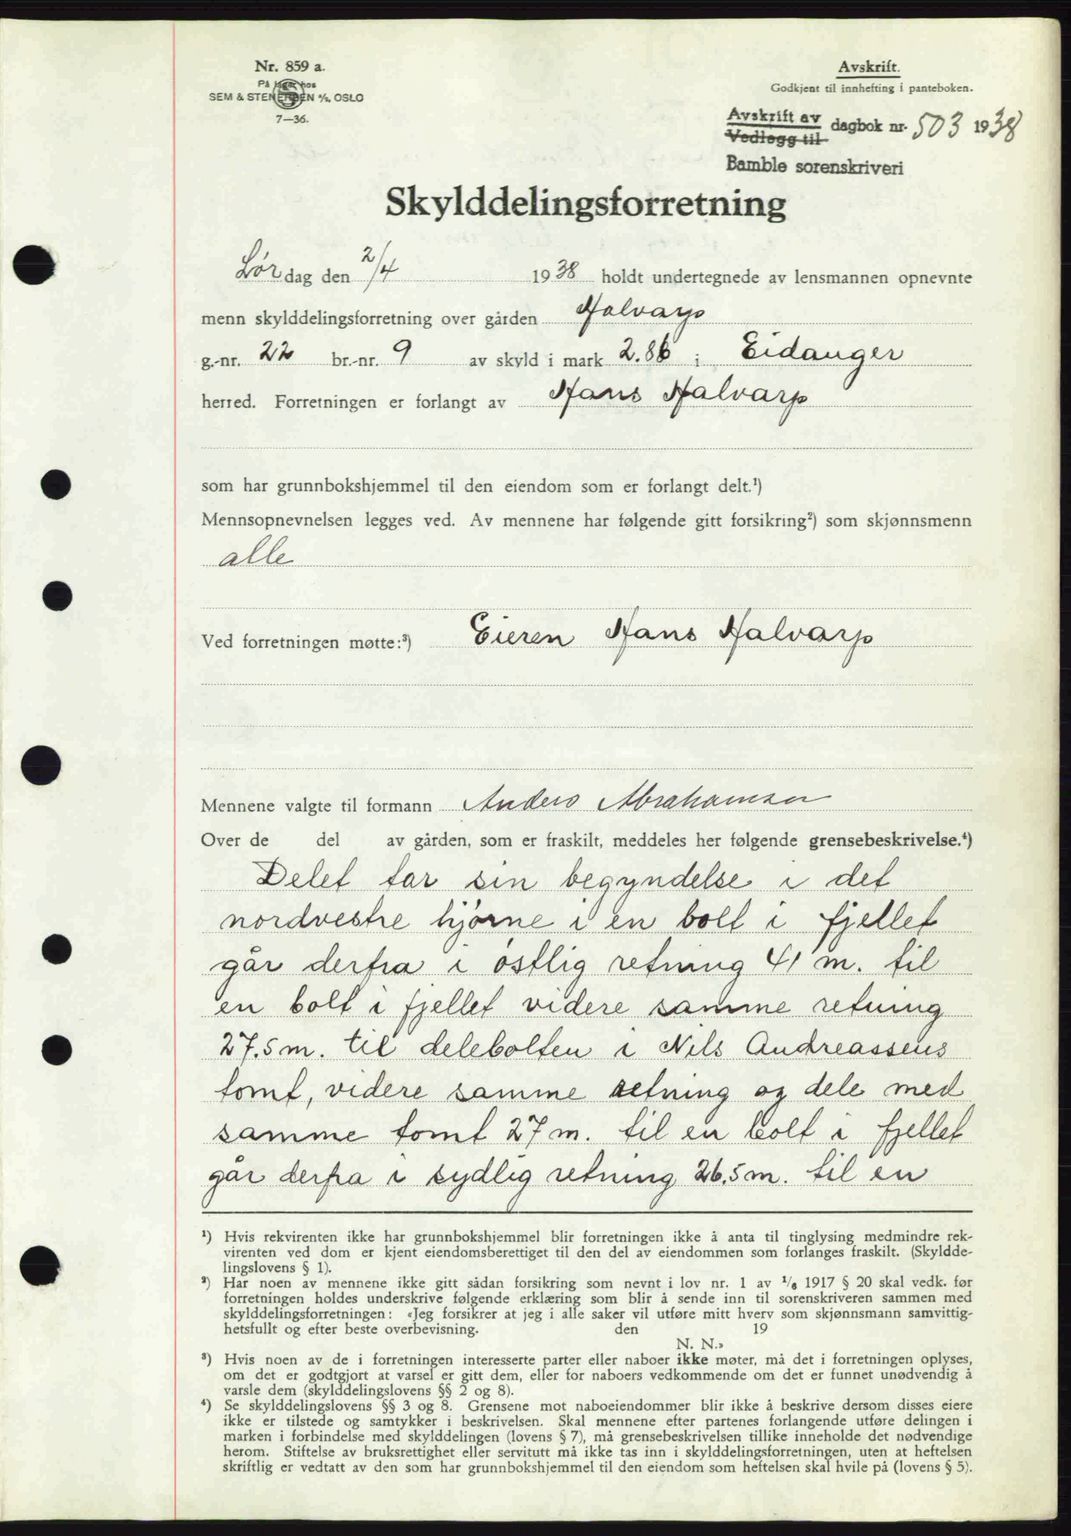 Nr. 859 a.
På lager hos
SEM & STENERSEN A/S, OSLO
7—36.
Avskrift.
Godkjent til innhefting i panteboken.
Avskrift av
Vedlegg til
dagbok nr. 503 1938
Bamble sorenskriveri
Skylddelingsforretning
Lørdag den 2/4 1938 holdt undertegnede av lensmannen opnevnte
menn skylddelingsforretning over gården Halvarp
g.-nr. 22 br.-nr. 9 av skyld i mark 2.86 i Eidanger
herred. Forretningen er forlangt av Hans Halvarp
som har grunnbokshjemmel til den eiendom som er forlangt delt.¹)
Mennsopnevnelsen legges ved. Av mennene har følgende gitt forsikring²) som skjønnsmenn
alle
Ved forretningen møtte:³) Eieren Hans Halvarp
Mennene valgte til formann Anders Abrahamsen
Over de del av gården, som er fraskilt, meddeles her følgende grensebeskrivelse.⁴)
Delet tar sin begyndelse i det
nordvestre hjørne i en bolt i fjellet
går derfra i østlig retning 41 m. til
en bolt i fjellet videre samme retning
27.5 m. til delebolten i Nils Andreassens
tomt, videre samme retning og dele med
samme tomt 27 m. til en bolt i fjellet
går derfra i sydlig retning 26,5 m. til en
¹) Hvis rekvirenten ikke har grunnbokshjemmel blir forretningen ikke å anta til tinglysing medmindre rek-
virenten ved dom er kjent eiendomsberettiget til den del av eiendommen som forlanges fraskilt. (Skyldde-
lingslovens § 1).
²) Har noen av mennene ikke gitt sådan forsikring som nevnt i lov nr. 1 av 1/6 1917 § 20 skal vedk. før
forretningen holdes underskrive følgende erklæring som blir å sende inn til sorenskriveren sammen med
skylddelingsforretningen: «Jeg forsikrer at jeg i alle saker vil utføre mitt hverv som skjønnsmann samvittig-
hetsfullt og efter beste overbevisning. den 19
N. N.»
³) Hvis noen av de i forretningen interesserte parter eller naboer ikke møter, må det i forretningen oplyses,
om det er godtgjort at varsel er gitt dem, eller for naboers vedkommende om det er funnet unødvendig å
varsle dem (skylddelingslovens §§ 2 og 8).
⁴) Se skylddelingslovens §§ 3 og 8. Grensene mot naboeiendommer blir ikke å beskrive dersom disses eiere
ikke er tilstede og samtykker i beskrivelsen. Skal mennene efter partenes forlangende utføre delingen i
marken i forbindelse med skylddelingen (lovens § 7), må grensebeskrivelsen tillike inneholde det nødvendige
herom. Stiftelse av bruksrettighet eller servitutt må ikke tas inn i skylddelingsforretningen, uten at heftelsen
skriftlig er vedtatt av den som har grunnbokshjemmel til den eiendom som heftelsen skal hvile på (lovens § 5).